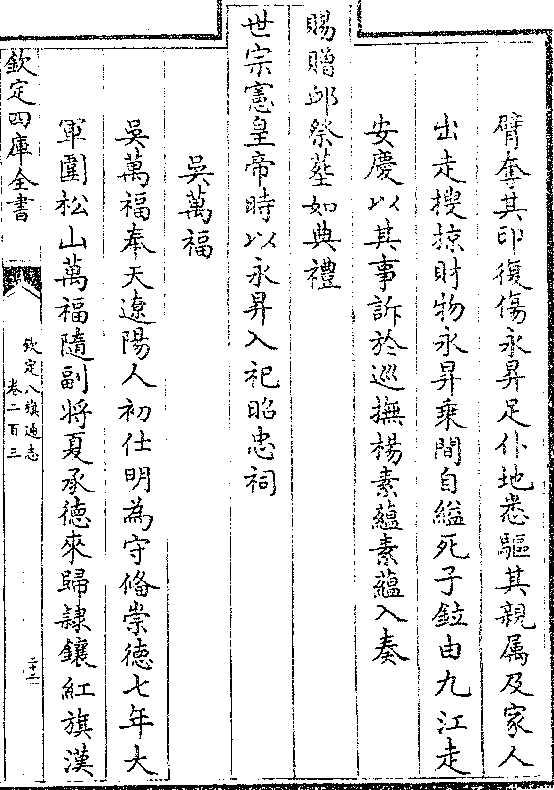 臂奪其印復傷永昇足仆地悉驅其親属及家人
出走搜掠財物永昇乗間自縊死子鉝由九江走
安慶以其事訴於巡撫楊素蘊素蘊入奏
賜贈䘏祭塟如典禮
世宗憲皇帝時以永昇入祀昭忠祠
吳萬福
吳萬福奉天遼陽人初仕明為守偹崇徳七年大
軍圍松山萬福隨副将夏承徳來歸隷鑲紅旗漢
欽定四庫全書
欽定八旗通志
卷二百三
二十二